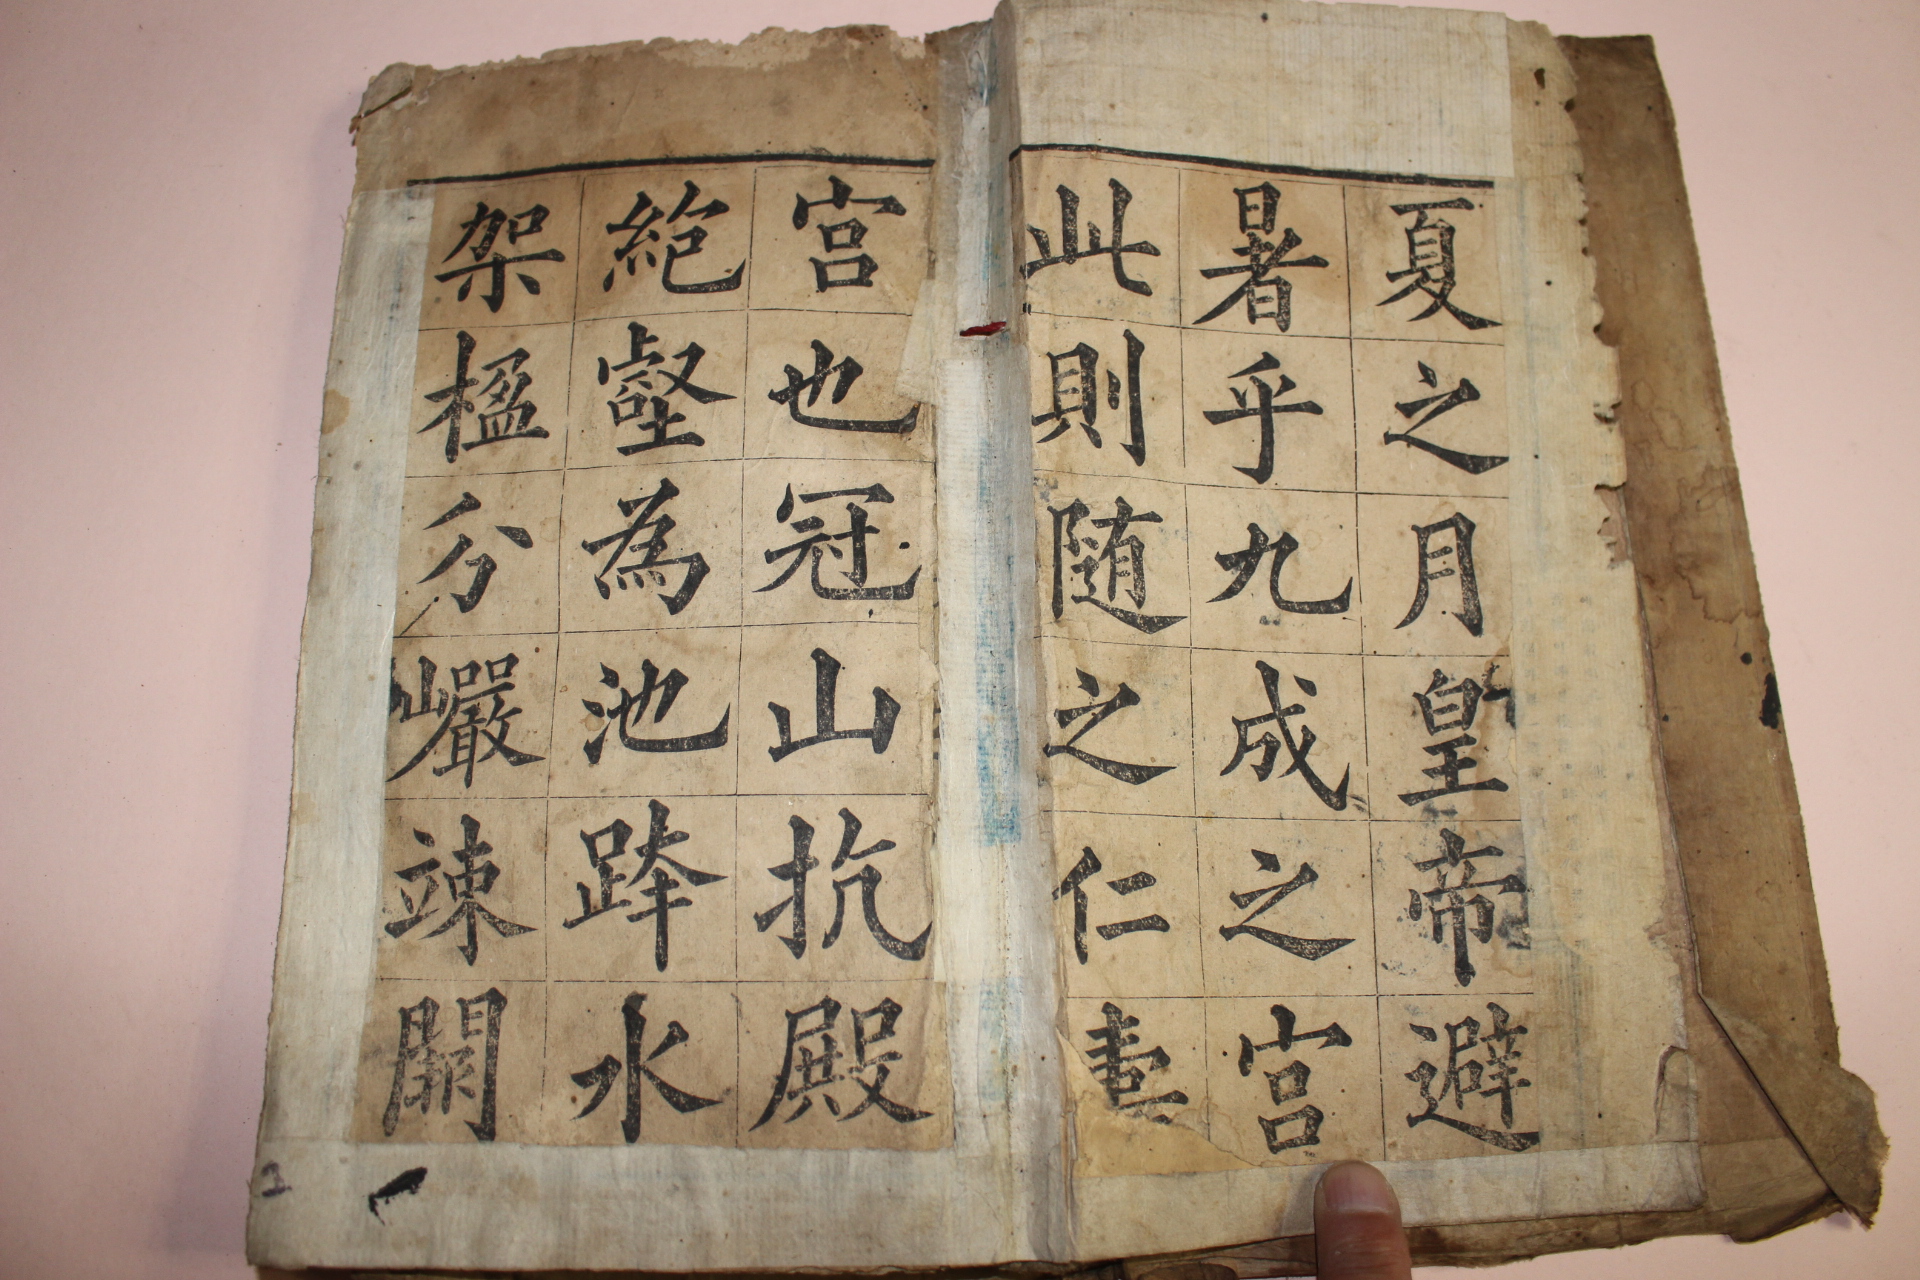 夏之月皇帝避
暑乎九成之宮
此則随之仁壽
宮也冠山抗殿
絶壑為池跨水
架楹分巗竦闕